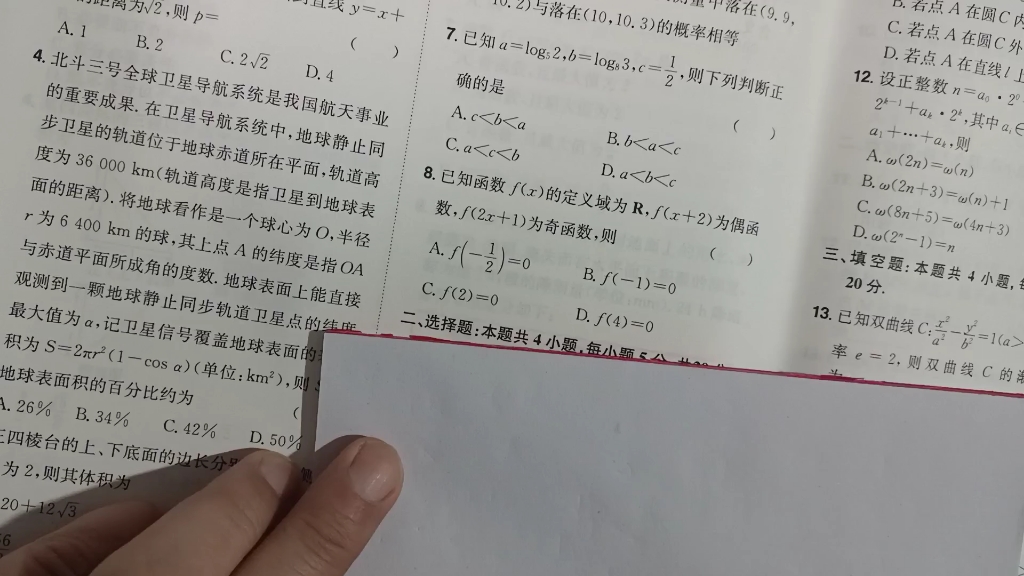 距离为√2,则 p=
直线 y=x+
( )
A. 1 B. 2 C. 2√2 D. 4
4. 北斗三号全球卫星导航系统是我国航天事业
的重要成果. 在卫星导航系统中,地球静止同
步卫星的轨道位于地球赤道所在平面,轨道高
度为 36 000 km(轨道高度是指卫星到地球表
面的距离). 将地球看作是一个球心为 O,半径
r 为 6 400 km 的球,其上点 A 的纬度是指 OA
与赤道平面所成角的度数. 地球表面上能直接
观测到一颗地球静止同步轨道卫星点的纬度
最大值为 α,记卫星信号覆盖地球表面的
积为 S=2πr²(1−cos α)(单位:km²),则
地球表面积的百分比约为 (
A. 26% B. 34% C. 42% D. 50%
四棱台的上、下底面的边长分
为 2,则其体积为
20+12√3
10.2)与落在(10,10.3)的概率相等
中落在(9.9,
7. 已知 a=log₅2,b=log₈3,c=1/2,则下列判断正
确的是 ( )
A. c<b<a B. b<a<c
C. a<c<b D. a<b<c
8. 已知函数 f(x)的定义域为 R,f(x+2)为偶函
数,f(2x+1)为奇函数,则 ( )
A. f(−1/2)=0 B. f(−1)=0
C. f(2)=0 D. f(4)=0
二、选择题:本题共 4 小题,每小题 5 分
B. 若点 A 在圆 C 内
C. 若点 A 在圆 C 外
D. 若点 A 在直线 l 上
12. 设正整数 n=a₀·2⁰
2ᵏ⁻¹+aₖ·2ᵏ,其中 aᵢ∈
a₁+···+aₖ,则
A. ω(2n)=ω(n)
B. ω(2n+3)=ω(n)+1
C. ω(8n+5)=ω(4n+3)
D. ω(2ⁿ−1)=n
三、填空题:本题共 4 小题,
20 分.
13. 已知双曲线 C:x²/a²−y²/b²=1(a>
率 e=2,则双曲线 C 的渐